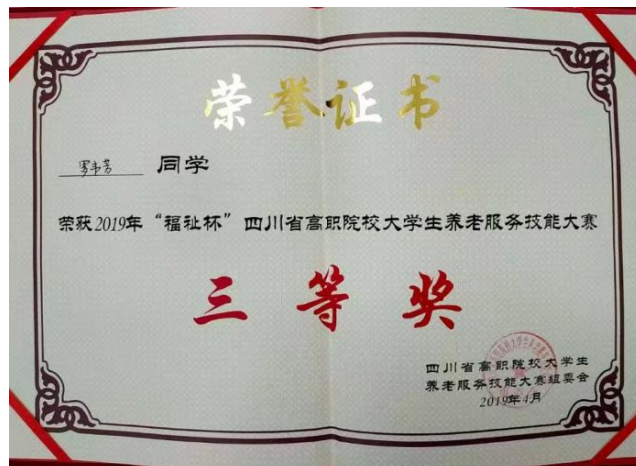 荣誉证书
同学
荣获2019年“福祉杯”四川省高职院校大学生养老服务技能大赛
三等奖
四川省高职院校大学生
养老服务技能大赛组委会
2019年4月